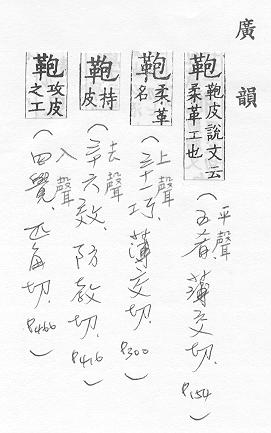 廣韻
鞄 鞄皮說文云柔革工也
(平聲 五肴 薄交切. P154)
鞄 柔革名
(上聲 三十一巧, 薄交切. P300)
鞄 持皮
(去聲 三十六效, 防教切. P416)
鞄 攻皮之工
(入聲 四覺, 匹角切. P466)